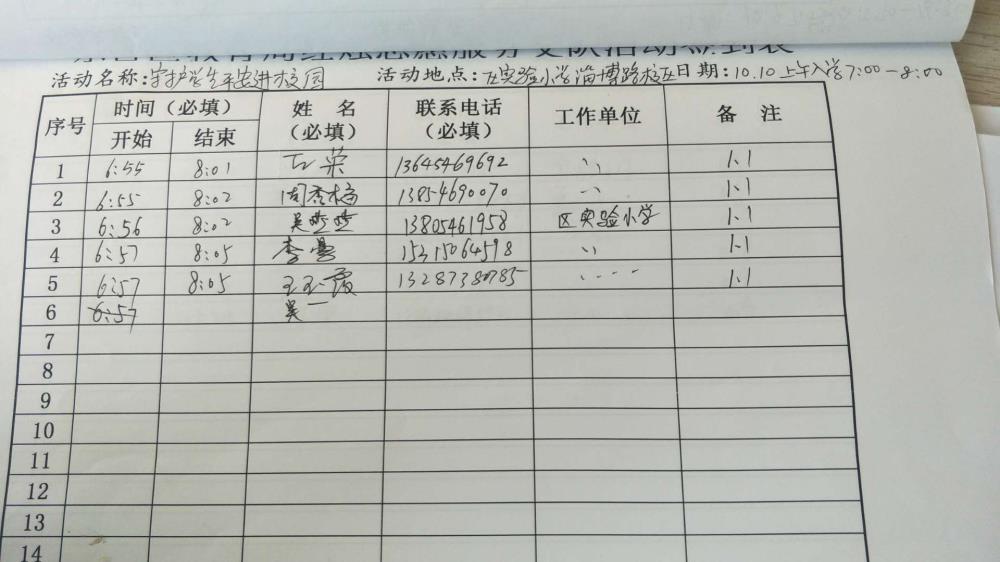 活动名称:守护学生平安进校园 活动地点:区实验小学淄博路校区 日期:10.10上午入学7:00-8:00
序号 时间(必填) 姓 名(必填) 联系电话(必填) 工作单位 备 注
开始 结束
1 6:55 8:01 13645469692 〃 1.1
2 6:55 8:02 13854690070 〃 1.1
3 6:56 8:02 13805461958 区实验小学 1.1
4 6:57 8:05 15215064598 〃 1.1
5 6:57 8:05 13287380785 1.1
6 6:57 吴一
7
8
9
10
11
12
13
14